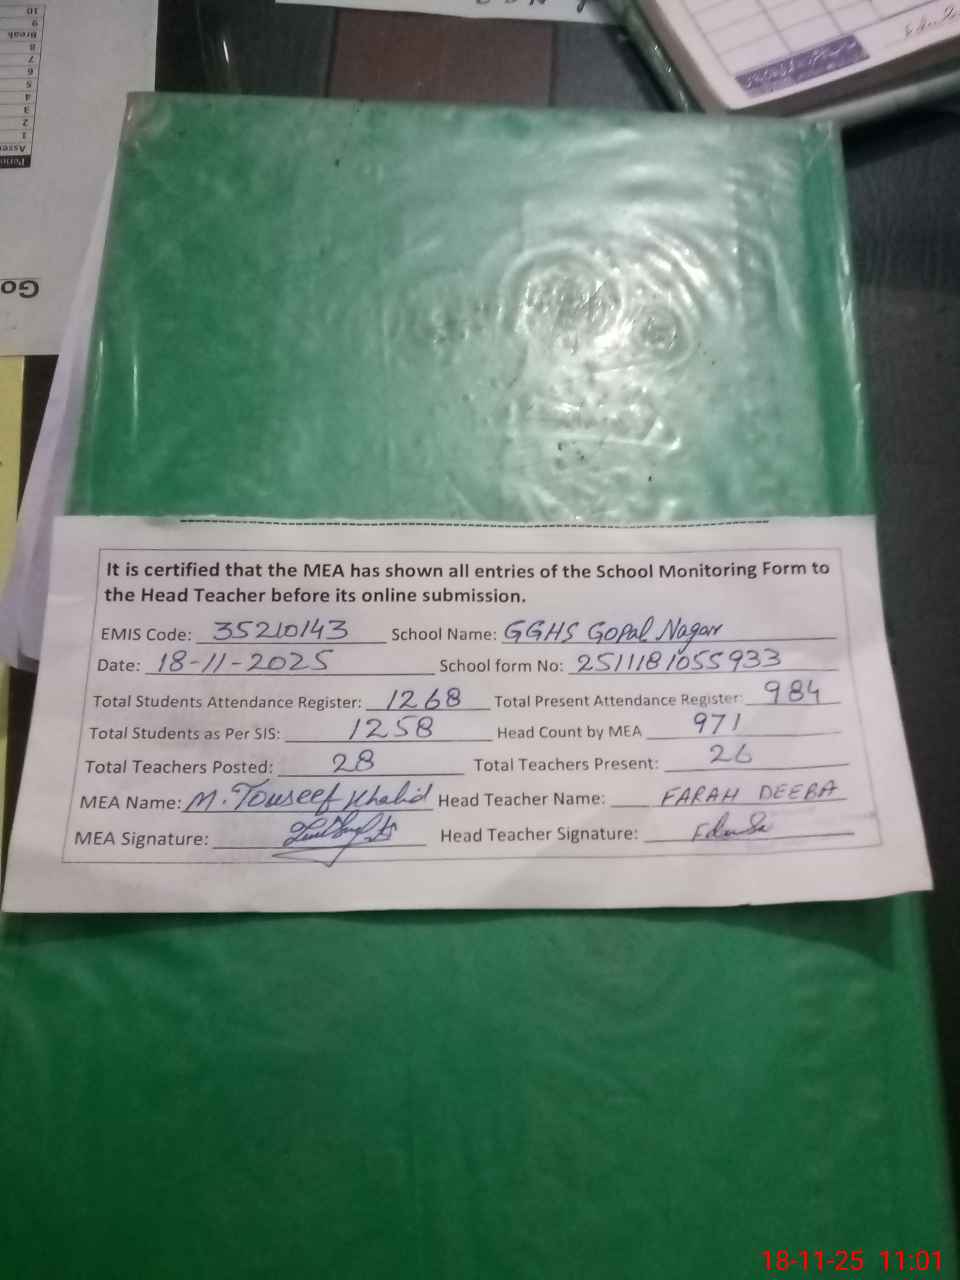 10
9
Break
8
7
6
5
4
3
2
1
Go
It is certified that the MEA has shown all entries of the School Monitoring Form to
the Head Teacher before its online submission.
EMIS Code: 35210143 School Name: GGHS Gopal Nagar
Date: 18-11-2025 School form No: 2511181055933
Total Students Attendance Register: 1268 Total Present Attendance Register: 984
Total Students as Per SIS: 1258 Head Count by MEA 971
Total Teachers Posted: 28 Total Teachers Present: 26
MEA Name: M. Touseef Khalid Head Teacher Name: FARAH DEEBA
MEA Signature: Head Teacher Signature:
18-11-25 11:01